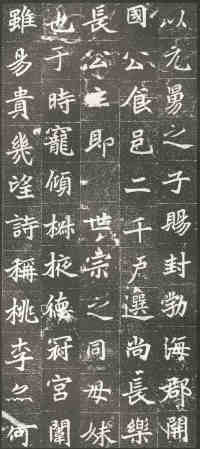 以元舅之子賜封勃海郡開
國公食邑二千户選尚長樂
長公主即世宗之同母妹
也于時寵傾椒掖德冠宮闈
雖易貴幾望詩稱桃李無何